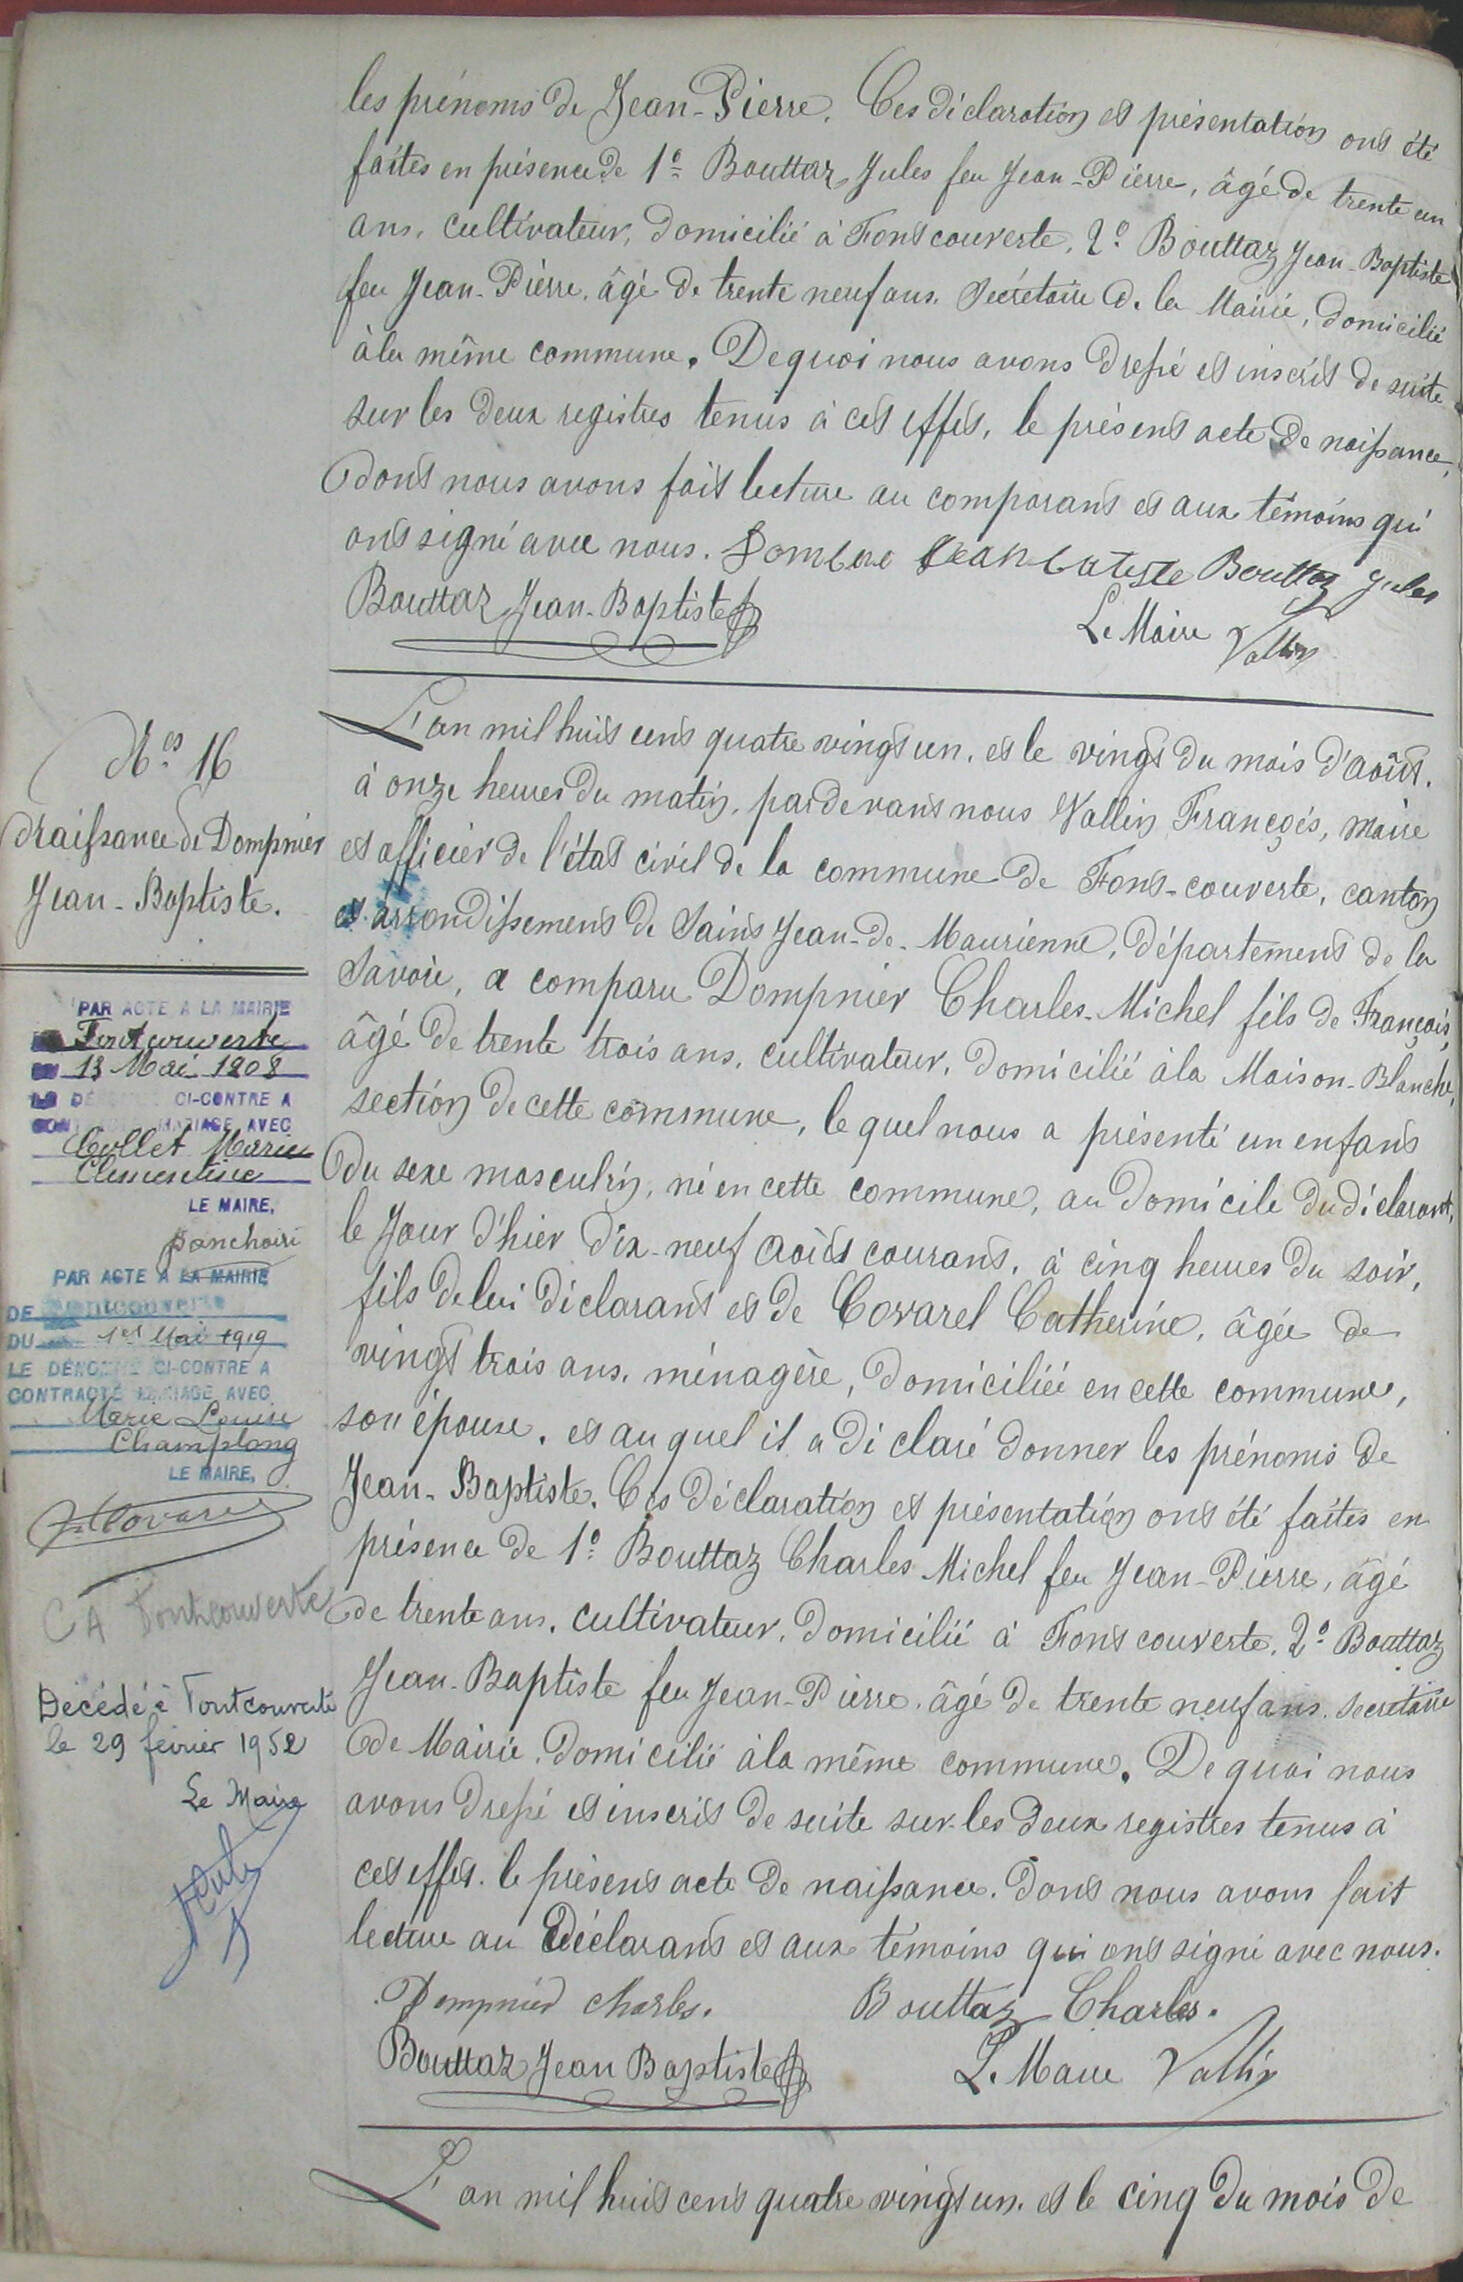 les prénoms de Jean-Pierre. Ces déclaration et présentation ont été
faites en présence de 1º Bouttaz Jules feu Jean-Pierre, âgé de trente un
ans, cultivateur, domicilié à Fontcouverte, 2º Bouttaz Jean-Baptiste
feu Jean-Pierre, âgé de trente neuf ans, Secrétaire de la Mairie, domicilié
à la même commune. De quoi nous avons dressé et inscrit de suite
sur les deux registres tenus à cet effet, le présent acte de naissance,
dont nous avons fait lecture au comparant et aux témoins qui
ont signé avec nous. Jean batiste Bouttaz Jules
Bouttaz Jean-Baptiste
Le Maire Vallin
Nº 16
Naissance de Dompnier
Jean-Baptiste.
PAR ACTE A LA MAIRIE
Fontcouverte
13 Mai 1908
CI-CONTRE A
MARIAGE AVEC
Collet Marie
Clémentine
LE MAIRE,
PAR ACTE A LA MAIRIE
DE Fontcouverte
DU 1er Mai 1919
LE DÉNOMMÉ CI-CONTRE A
CONTRACTÉ MARIAGE AVEC
Marie Louise
Champlong
LE MAIRE,
CA Fontcouverte
Décédé à Fontcouverte
le 29 février 1952
Le Maire
L'an mil huit cent quatre vingt un, et le vingt du mois d'Août,
à onze heures du matin, pardevant nous Vallin François, Maire
et officier de l'état civil de la commune de Font-couverte, canton
et arrondissement de Saint Jean-de-Maurienne, département de la
Savoie, a comparu Dompnier Charles-Michel fils de François,
âgé de trente trois ans, cultivateur, domicilié à la Maison-Blanche,
section de cette commune, lequel nous a présenté un enfant
du sexe masculin, né en cette commune, au domicile du déclarant,
le jour d'hier dix-neuf août courant, à cinq heures du soir,
fils de lui déclarant et de Covarel Catherine, âgée de
vingt trois ans, ménagère, domiciliée en cette commune,
son épouse, et auquel il a déclaré donner les prénoms de
Jean-Baptiste. Ces déclaration et présentation ont été faites en
présence de 1º Bouttaz Charles Michel feu Jean-Pierre, âgé
de trente ans, cultivateur, domicilié à Font couverte, 2º Bouttaz
Jean-Baptiste feu Jean-Pierre, âgé de trente neuf ans, secrétaire
de Mairie, domicilié à la même commune. De quoi nous
avons dressé et inscrit de suite sur les deux registres tenus à
cet effet, le présent acte de naissance, dont nous avons fait
lecture au déclarant et aux témoins qui ont signé avec nous.
Dompnier Charles. Bouttaz Charles.
Bouttaz Jean Baptiste Le Maire Vallin
L'an mil huit cent quatre vingt un, et le cinq du mois de